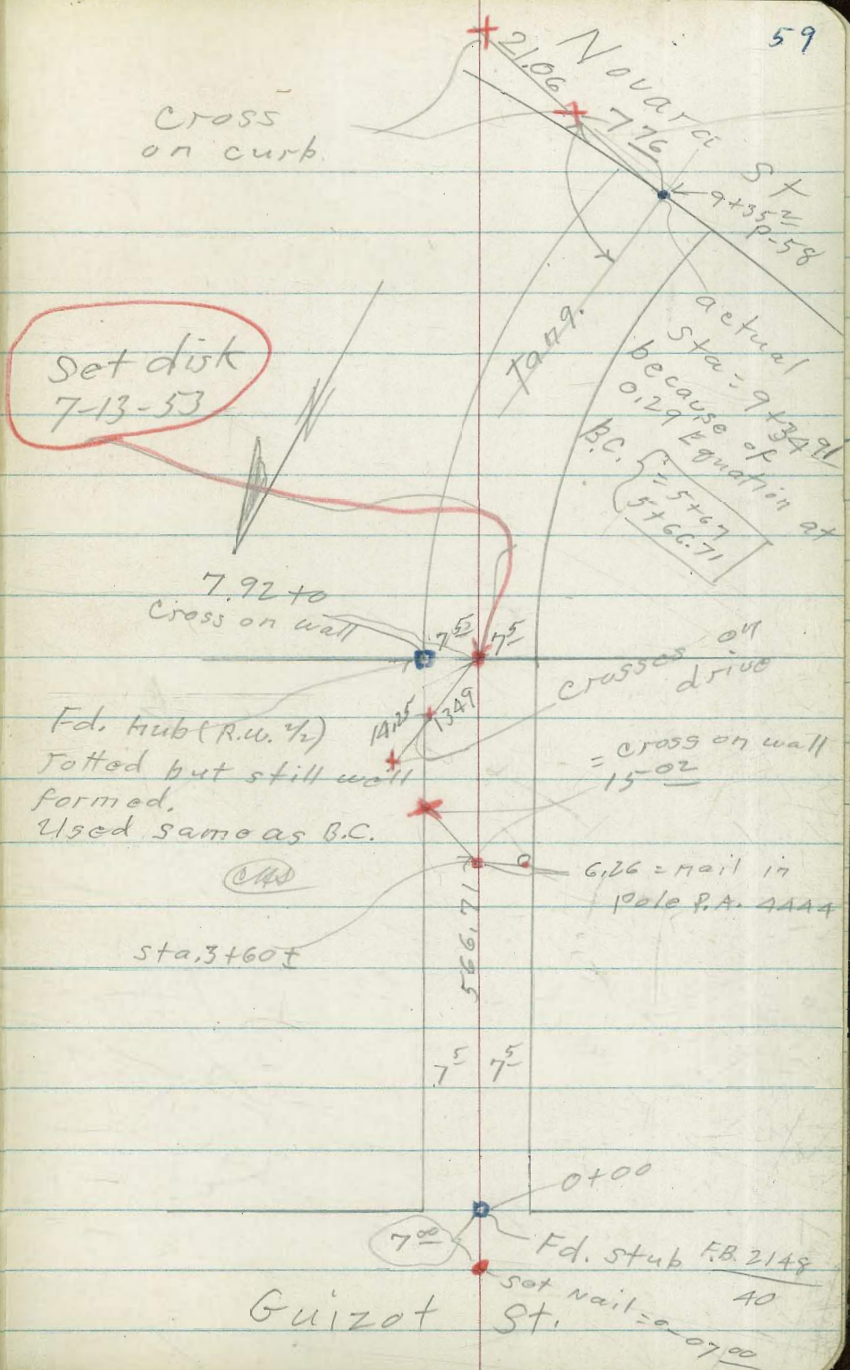 59
Novara St
21.06
7.76
Cross
on curb.
9+35.2
P-58
Tang.
actual
Sta = 9+34.91
because of
0.29 Equation at
B.C. { = 5+67
5+66.71
Set disk
7-13-53
N
7.92 to
Cross on wall
7.52
7.5
Crosses on
drive
14.25
13.49
Fd. hub (R.W. 1/2)
rotted but still well
formed.
Used same as B.C.
= cross on wall
15.02
6.26 = nail in
pole P.A. 4444
sta. 3+60±
566.71
7.5
7.5
0+00
7.00
Fd. stub F.B. 2148
40
set Nail = 0-07.00
Guizot St.